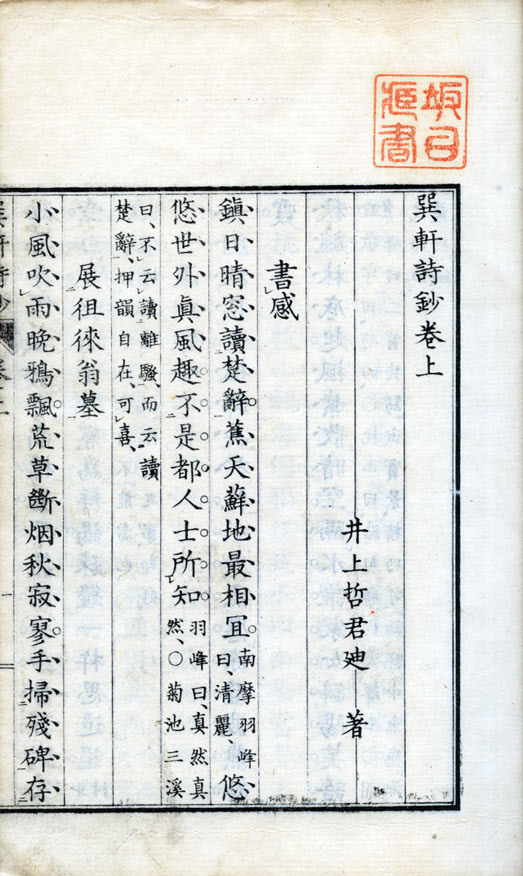 巽軒詩鈔卷上
井上哲君迪 著
書感
鎮日晴窓讀楚辭蕉天蘇地最相冝南摩羽峰曰、清麗、悠
悠世外眞風趣不是都人士所知羽峰曰、真然真然、〇菊池三溪
曰、不云讀離騷、而云讀
楚辭、押韻自在、可喜、
展徂徠翁墓
小風吹雨晚鴉飄荒草斷烟秋寂寥手掃殘碑存